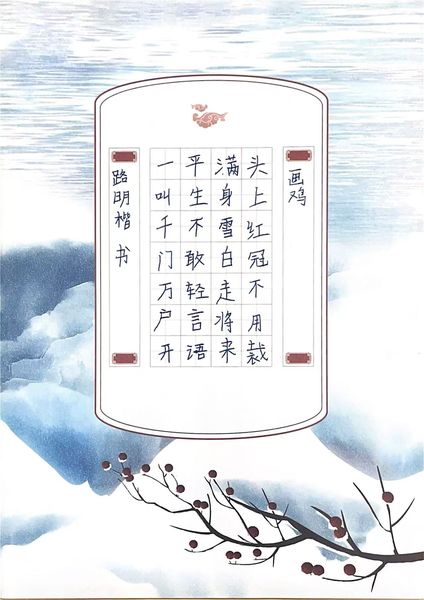 画鸡
头上红冠不用裁
满身雪白走将来
平生不敢轻言语
一叫千门万户开
路明楷书